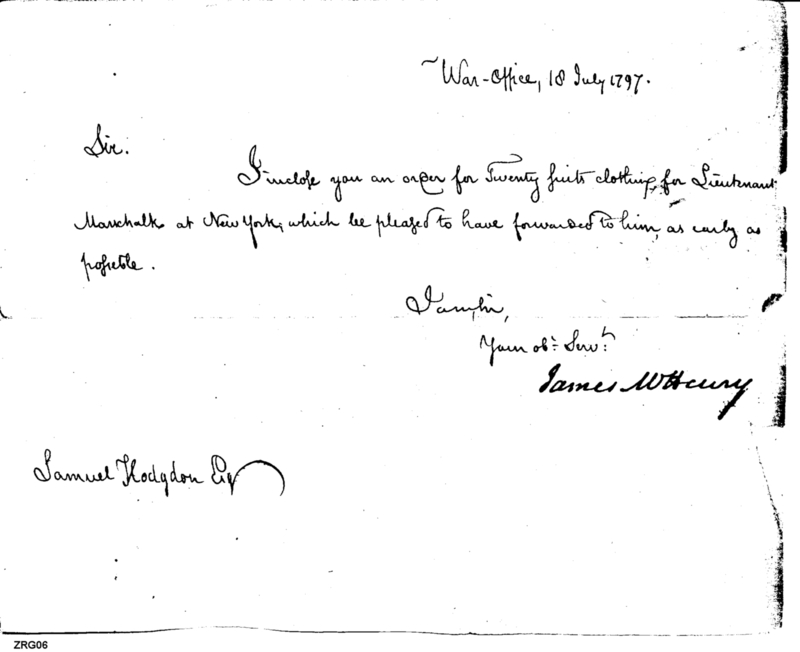 War-Office, 18 July 1797.
Sir.
I inclose you an order for Twenty suits clothing, for Lieutenant
Marschalk at New York, which be pleased to have forwarded to him, as early as
possible.
I am, Sir,
Your obt. Servt.
James McHenry
Samuel Hodgdon Esq
ZRG06